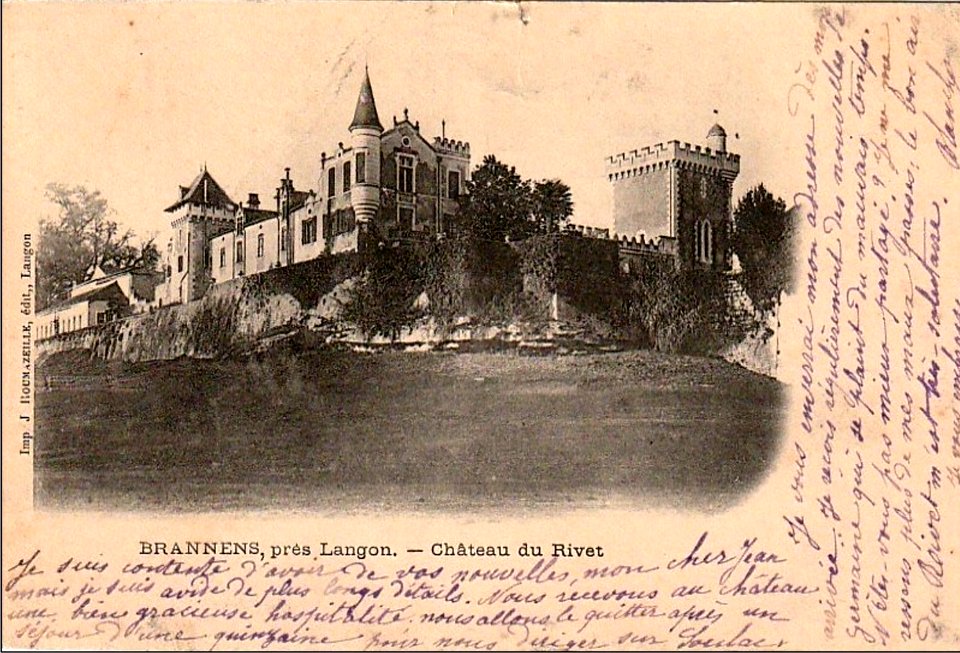 Imp. J ROUMAZEILLE, édit., Langon
BRANNENS, près Langon. — Château du Rivet
Je suis contente d'avoir de vos nouvelles, mon cher Jean
mais je suis avide de plus longs détails. Nous recevons au château
une bien gracieuse hospitalité. nous allons le quitter après un
séjour d'une quinzaine pour nous diriger sur Soulac,
je vous enverrai mon adresse dès mon
arrivée. Je reçois régulièrement des nouvelles de
germaine qui se plaint du mauvais temps.
N'êtes-vous pas mieux partagé? Je ne me
ressens plus de mes maux Grasses; le bon air
du Rivet m'est très salutaire.
Je vous embrasse Blanche